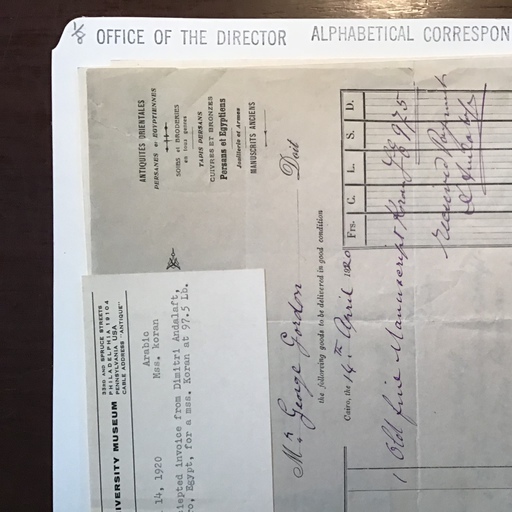 IVERSITY MUSEUM
33RD AND SPRUCE STREETS
PHILADELPHIA 19104
PENNSYLVANIA USA
CABLE ADDRESS "ANTIQUE"
Arabic
14, 1920 Mss. koran
ceipted invoice from Dimitri Andalaft,
ro, Egypt, for a mss. Koran at 97.5 Lb.
ANTIQUITÉS ORIENTALES
PERSANES et EGYPTIENNES
SOIES et BRODERIES
en tous genres
TAPIS PERSANS
CUIVRES ET BRONZES
Persans et Egyptiens
Joaillerie et Armes
MANUSCRITS ANCIENS
Mr. George Gordon Doit
the following goods to be delivered in good condition
Cairo, the 14th April 1920
Frs. C. L. S. D.
1 Old fine Manuscript Koran £E 97.5
received Payment
OFFICE OF THE DIRECTOR ALPHABETICAL CORRESPON